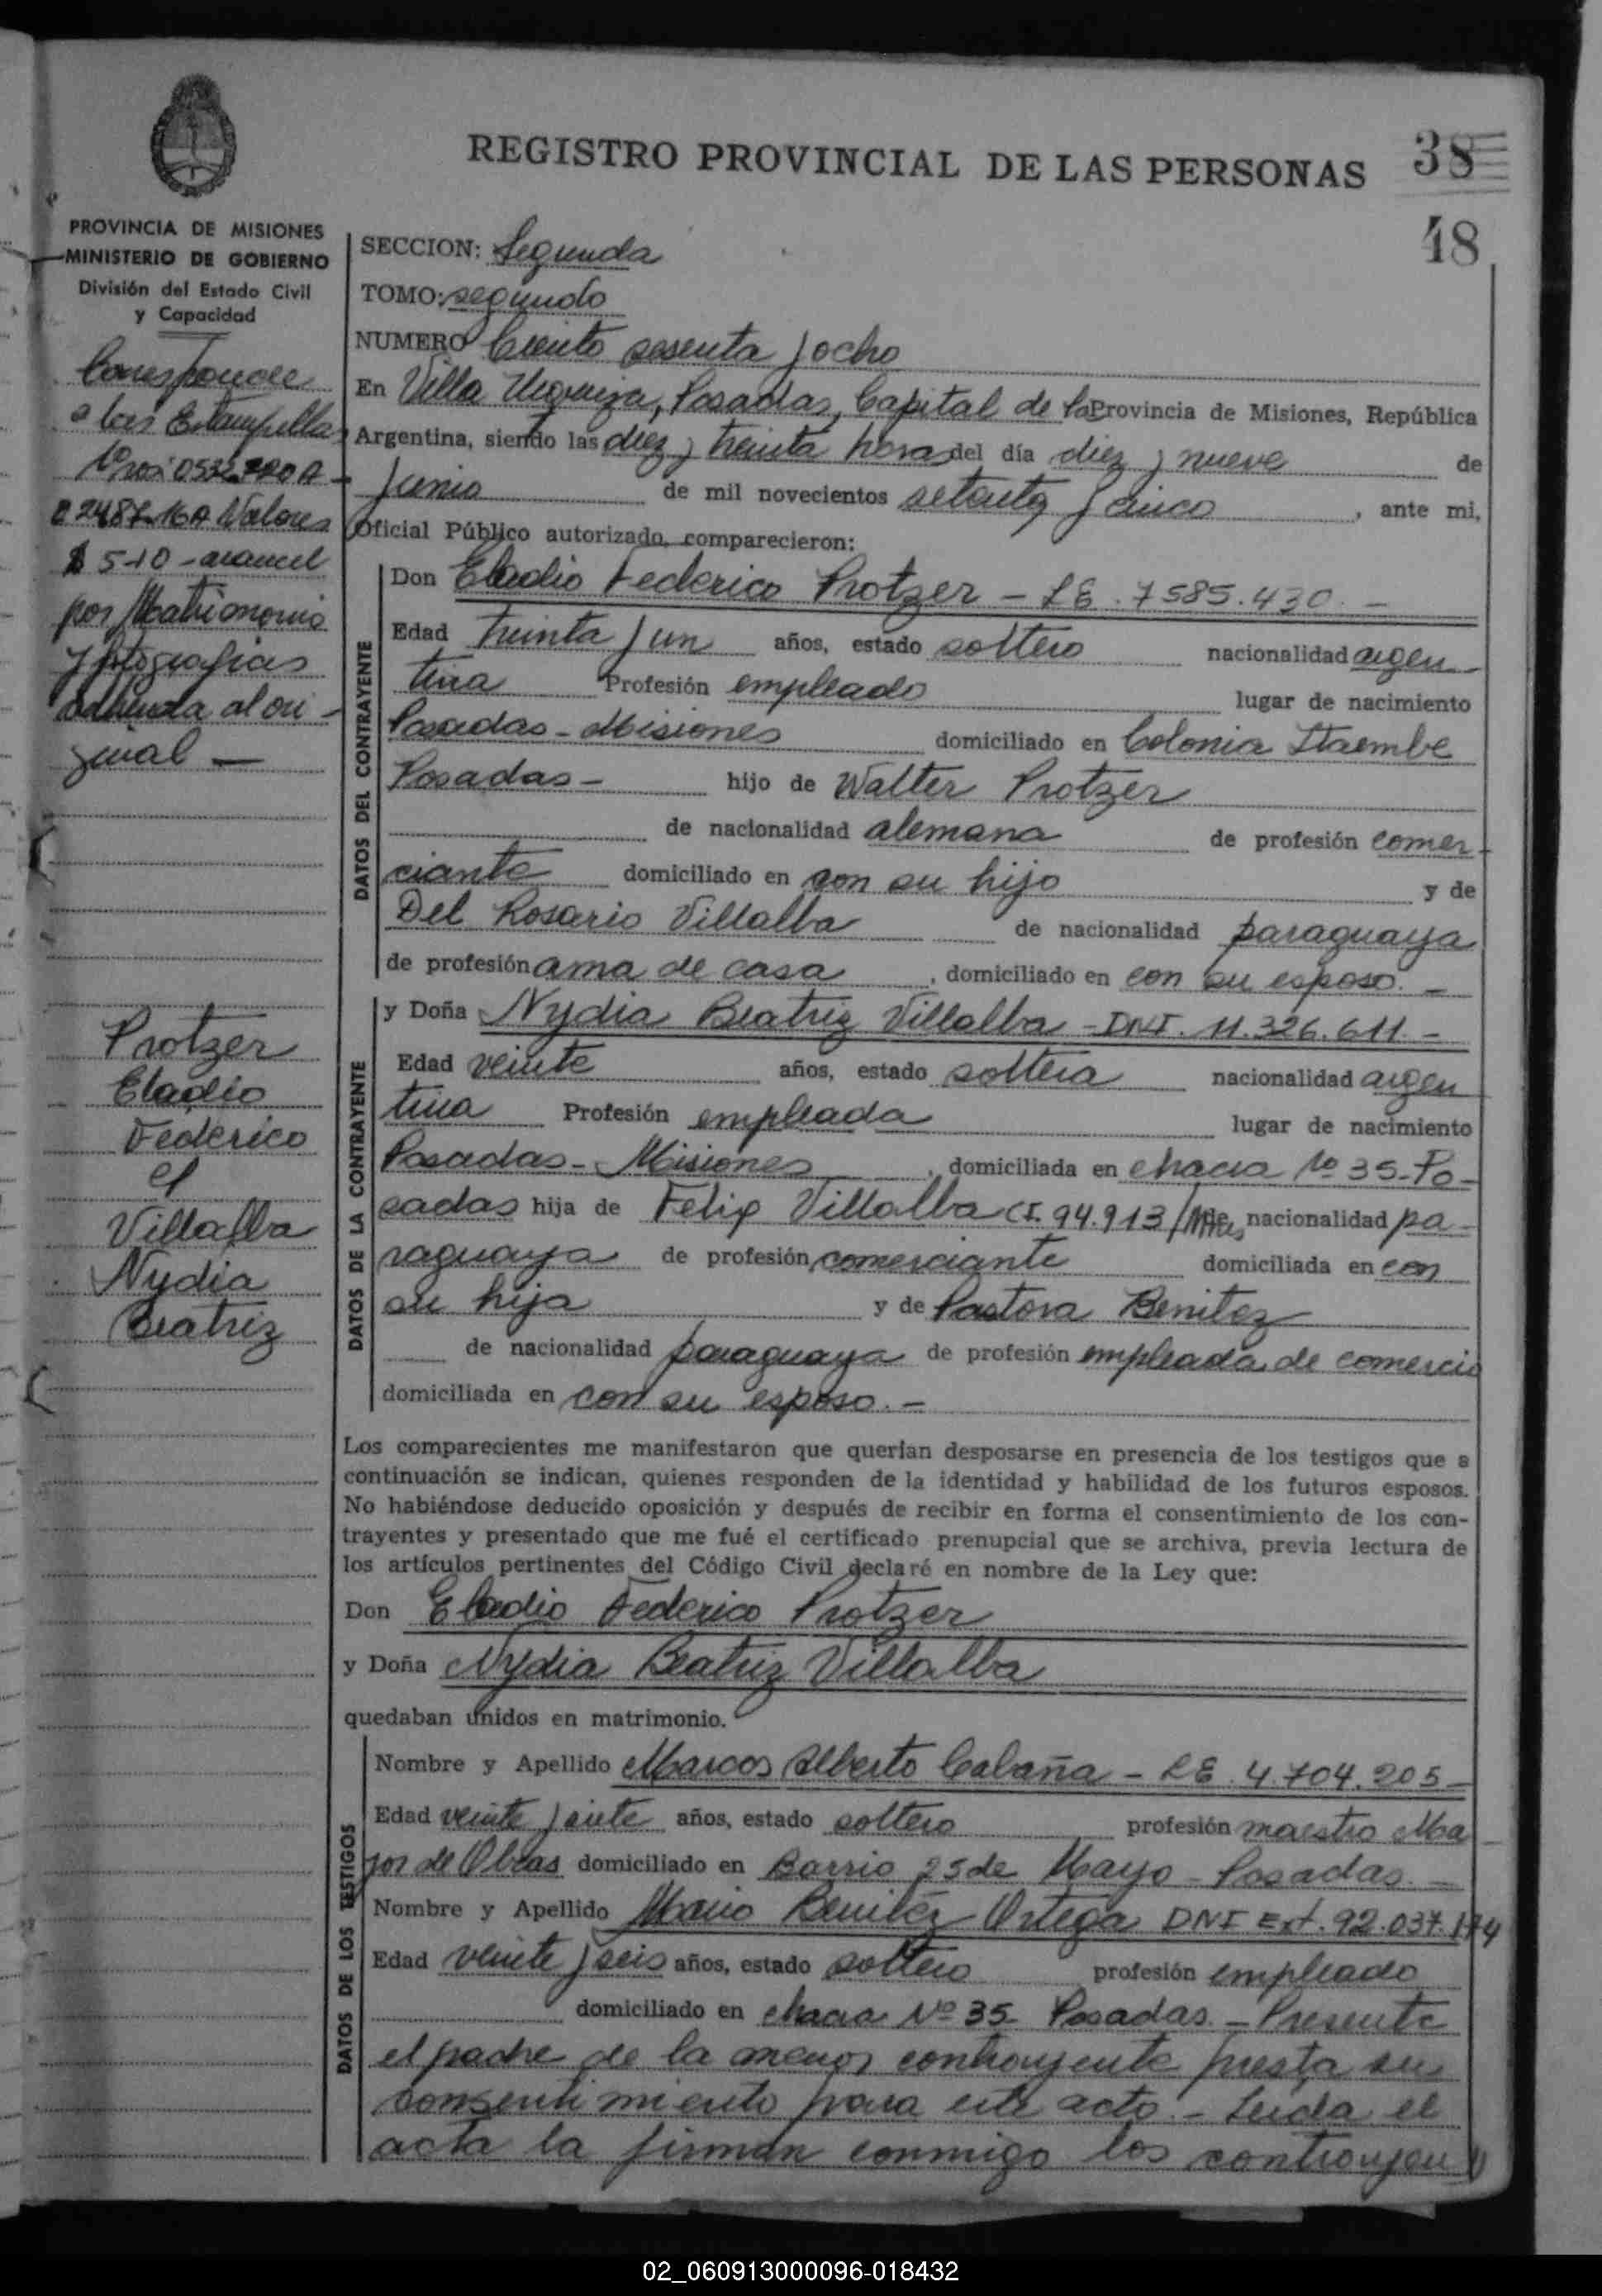 REGISTRO PROVINCIAL DE LAS PERSONAS
38
48
PROVINCIA DE MISIONES
MINISTERIO DE GOBIERNO
División del Estado Civil
y Capacidad
Corresponde
a las Estampillas
Nros 0532
02487-16A Valores
$ 5-10 - arancel
por Matrimonio
y fotografias
adherida al ori-
ginal —
Protzer
Eladio
Federico
c/
Villalba
Nydia
Beatriz
SECCION: Segunda
TOMO: segundo
NUMERO Ciento sesenta y ocho
En Villa Urquiza, Posadas, Capital de la Provincia de Misiones, República
Argentina, siendo las diez y treinta horas del día diez y nueve de
Junio de mil novecientos setenta y cinco, ante mi,
Oficial Público autorizado, comparecieron:
DATOS DEL CONTRAYENTE
Don Eladio Federico Protzer - LE. 7585.430. -
Edad treinta y un años, estado soltero nacionalidad argen-
tina Profesión empleado lugar de nacimiento
Posadas - Misiones domiciliado en Colonia Itaembe
Posadas - hijo de Walter Protzer
de nacionalidad alemana de profesión comer-
ciante domiciliado en con su hijo y de
Del Rosario Villalba de nacionalidad paraguaya
de profesión ama de casa, domiciliado en con su esposo. -
DATOS DE LA CONTRAYENTE
y Doña Nydia Beatriz Villalba - DNI. 11.326.611. -
Edad veinte años, estado soltera nacionalidad argen
tina Profesión empleada lugar de nacimiento
Posadas - Misiones, domiciliada en chacra No 35 - Po-
sadas hija de Felix Villalba CI. 94.913/Mnes de nacionalidad pa-
raguaya de profesión comerciante domiciliada en con
su hija y de Pastora Benitez
de nacionalidad paraguaya de profesión empleada de comercio
domiciliada en con su esposo. -
Los comparecientes me manifestaron que querían desposarse en presencia de los testigos que a
continuación se indican, quienes responden de la identidad y habilidad de los futuros esposos.
No habiéndose deducido oposición y después de recibir en forma el consentimiento de los con-
trayentes y presentado que me fué el certificado prenupcial que se archiva, previa lectura de
los artículos pertinentes del Código Civil declaré en nombre de la Ley que:
Don Eladio Federico Protzer
y Doña Nydia Beatriz Villalba
quedaban unidos en matrimonio.
DATOS DE LOS TESTIGOS
Nombre y Apellido Marcos Alberto Cabaña - LE. 4.704.205 -
Edad veinte y siete años, estado soltero profesión maestro Ma-
yor de Obras domiciliado en Barrio 25 de Mayo - Posadas. -
Nombre y Apellido Mario Benitez Ortega DNI Ext. 92.037.174
Edad veinte y seis años, estado soltero profesión empleado
domiciliado en chacra Nº 35 - Posadas. - Presente
el padre de la menor contrayente presta su
consentimiento para este acto. - Leida el
acta la firman conmigo los contrayen
02_060913000096-018432